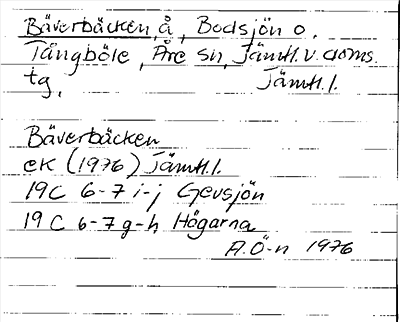 Bäverbäcken, å, Bodsjön o.
Tångböle, Åre sn, Jämtl. v. doms.
tg, Jämtl. l.
Bäverbäcken
ek (1976) Jämtl. l.
19C 6-7 i-j Gevsjön
19C 6-7 g-h Högarna
A.Ö-n 1976